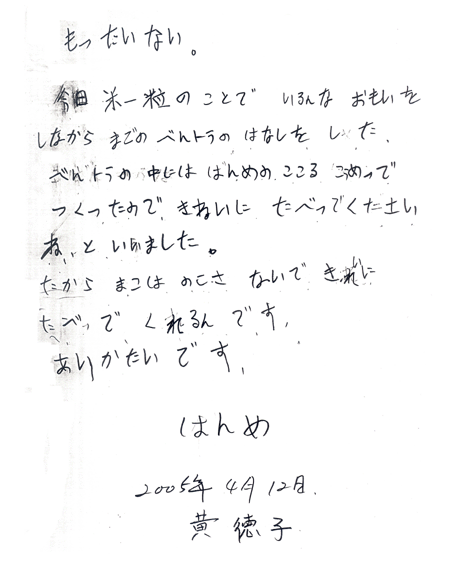 もったいない。
今日 米一粒のことで いろんな おもいを
しながら まごの べんトラの はなしを した、
べんトラの 中には はんめの こころ こめって
つくったので きねいに たべってくた土い
ね、と いいました。
だから まこは のこさ ないで きれいに
たべって くれるん です、
ありがたい です、
はんめ
2005年 4月 12日.
黄 徳 子